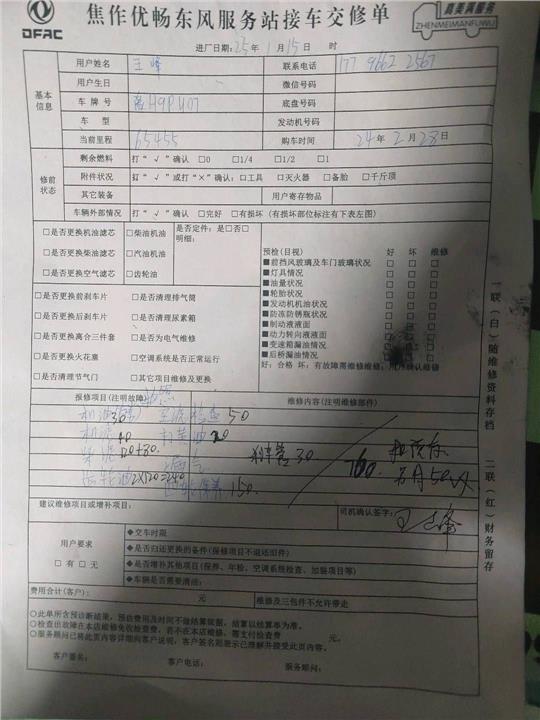 DFAC
焦作优畅东风服务站接车交修单
真美满服务
ZHENMEIMANFUWU
进厂日期: 25年 1月 15日 时
基本信息
用户姓名 王峰 联系电话 177 9662 2567
用户生日 微信号码
车牌号 底盘号码
车型 发动机号码
当前里程 65455 购车时间 24年2月28日
修前状态
剩余燃料 打“√”确认 □0 □1/4 □1/2 □1
附件状况 打“√”或打“×”确认:□工具 □灭火器 □备胎 □千斤顶
其它装备 用户寄存物品
车辆外部情况 打“√”确认 □完好 □有损坏(有损坏部位标注有下表左图)
□是否更换机油滤芯 □柴油机油 是否定件:是□否□
明细:
□是否更换柴油滤芯 □汽油机油
□是否更换空气滤芯 □齿轮油
□是否更换前刹车片 □是否清理排气筒
□是否更换后刹车片 □是否清理尿素箱
□是否更换离合三件套 □是否为电气维修
□是否更换火花塞 □空调系统是否正常运行
□是否清理节气门 □其它项目维修及更换
预检(目视) 好 坏 维修
■前挡风玻璃及车门玻璃状况 □ □ □
■灯具情况 □ □ □
■油量状况 □ □ □
■轮胎状况 □ □ □
■发动机机油状况 □ □ □
■防冻防锈瓶状况 □ □ □
■制动液液面 □ □ □
■动力转向液液面 □ □ □
■变速箱漏油情况 □ □ □
■后桥漏油情况 □ □ □
好:合格 坏:有故障需维修维修:用户确认维修
报修项目(注明故障) 维修内容(注明维修部件)
机油 检查 50
机滤 40 打黄油 20
柴滤 120+80. 刹车管 30 760.
齿轮油 2×120=240
保养 150.
建议维修项目或增补项目: 司机确认签字: 王峰
用户要求
□有 □无
◆交车时限
◆是否归还更换的备件(保修项目不退还旧件)
◆是否增补其他项目(保养、年检、空调系统检查、加装项目等)
◆车辆是否需要清洁:
费用合计(客户): 元 维修及三包件不允许带走
○此单所含预诊断结果,预估费用及时间不做结算依据,结算以结算单为准。
○检查出故障在本店维修免收检查费,若不在本店维修,需支付检查费 元
○服务顾问已将此页内容详细向客户说明,客户签名则表示已理解并接受此页内容。
客户签名: 客户电话: 服务顾问:
一联(白)随维修资料存档
二联(红)财务留存